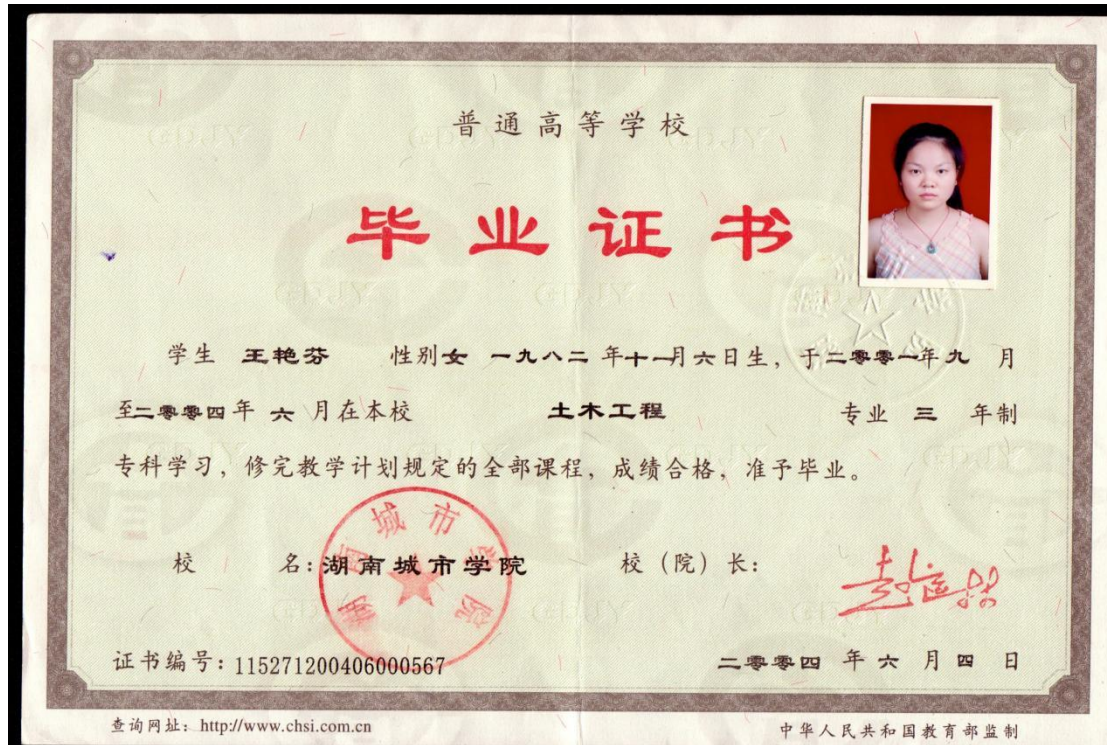 普通高等学校
毕业证书
学生 王艳芬 性别女 一九八二 年十一月六日生，于二零零一年九 月
至二零零四年 六 月在本校 土木工程 专业 三 年制
专科学习，修完教学计划规定的全部课程，成绩合格，准予毕业。
校 名：湖南城市学院 校（院）长：
湖南城市学院
证书编号：115271200406000567 二零零四 年 六 月 四 日
查询网址：http://www.chsi.com.cn 中华人民共和国教育部监制
GDJY GDJY GDJY
GDJY GDJY GDJY